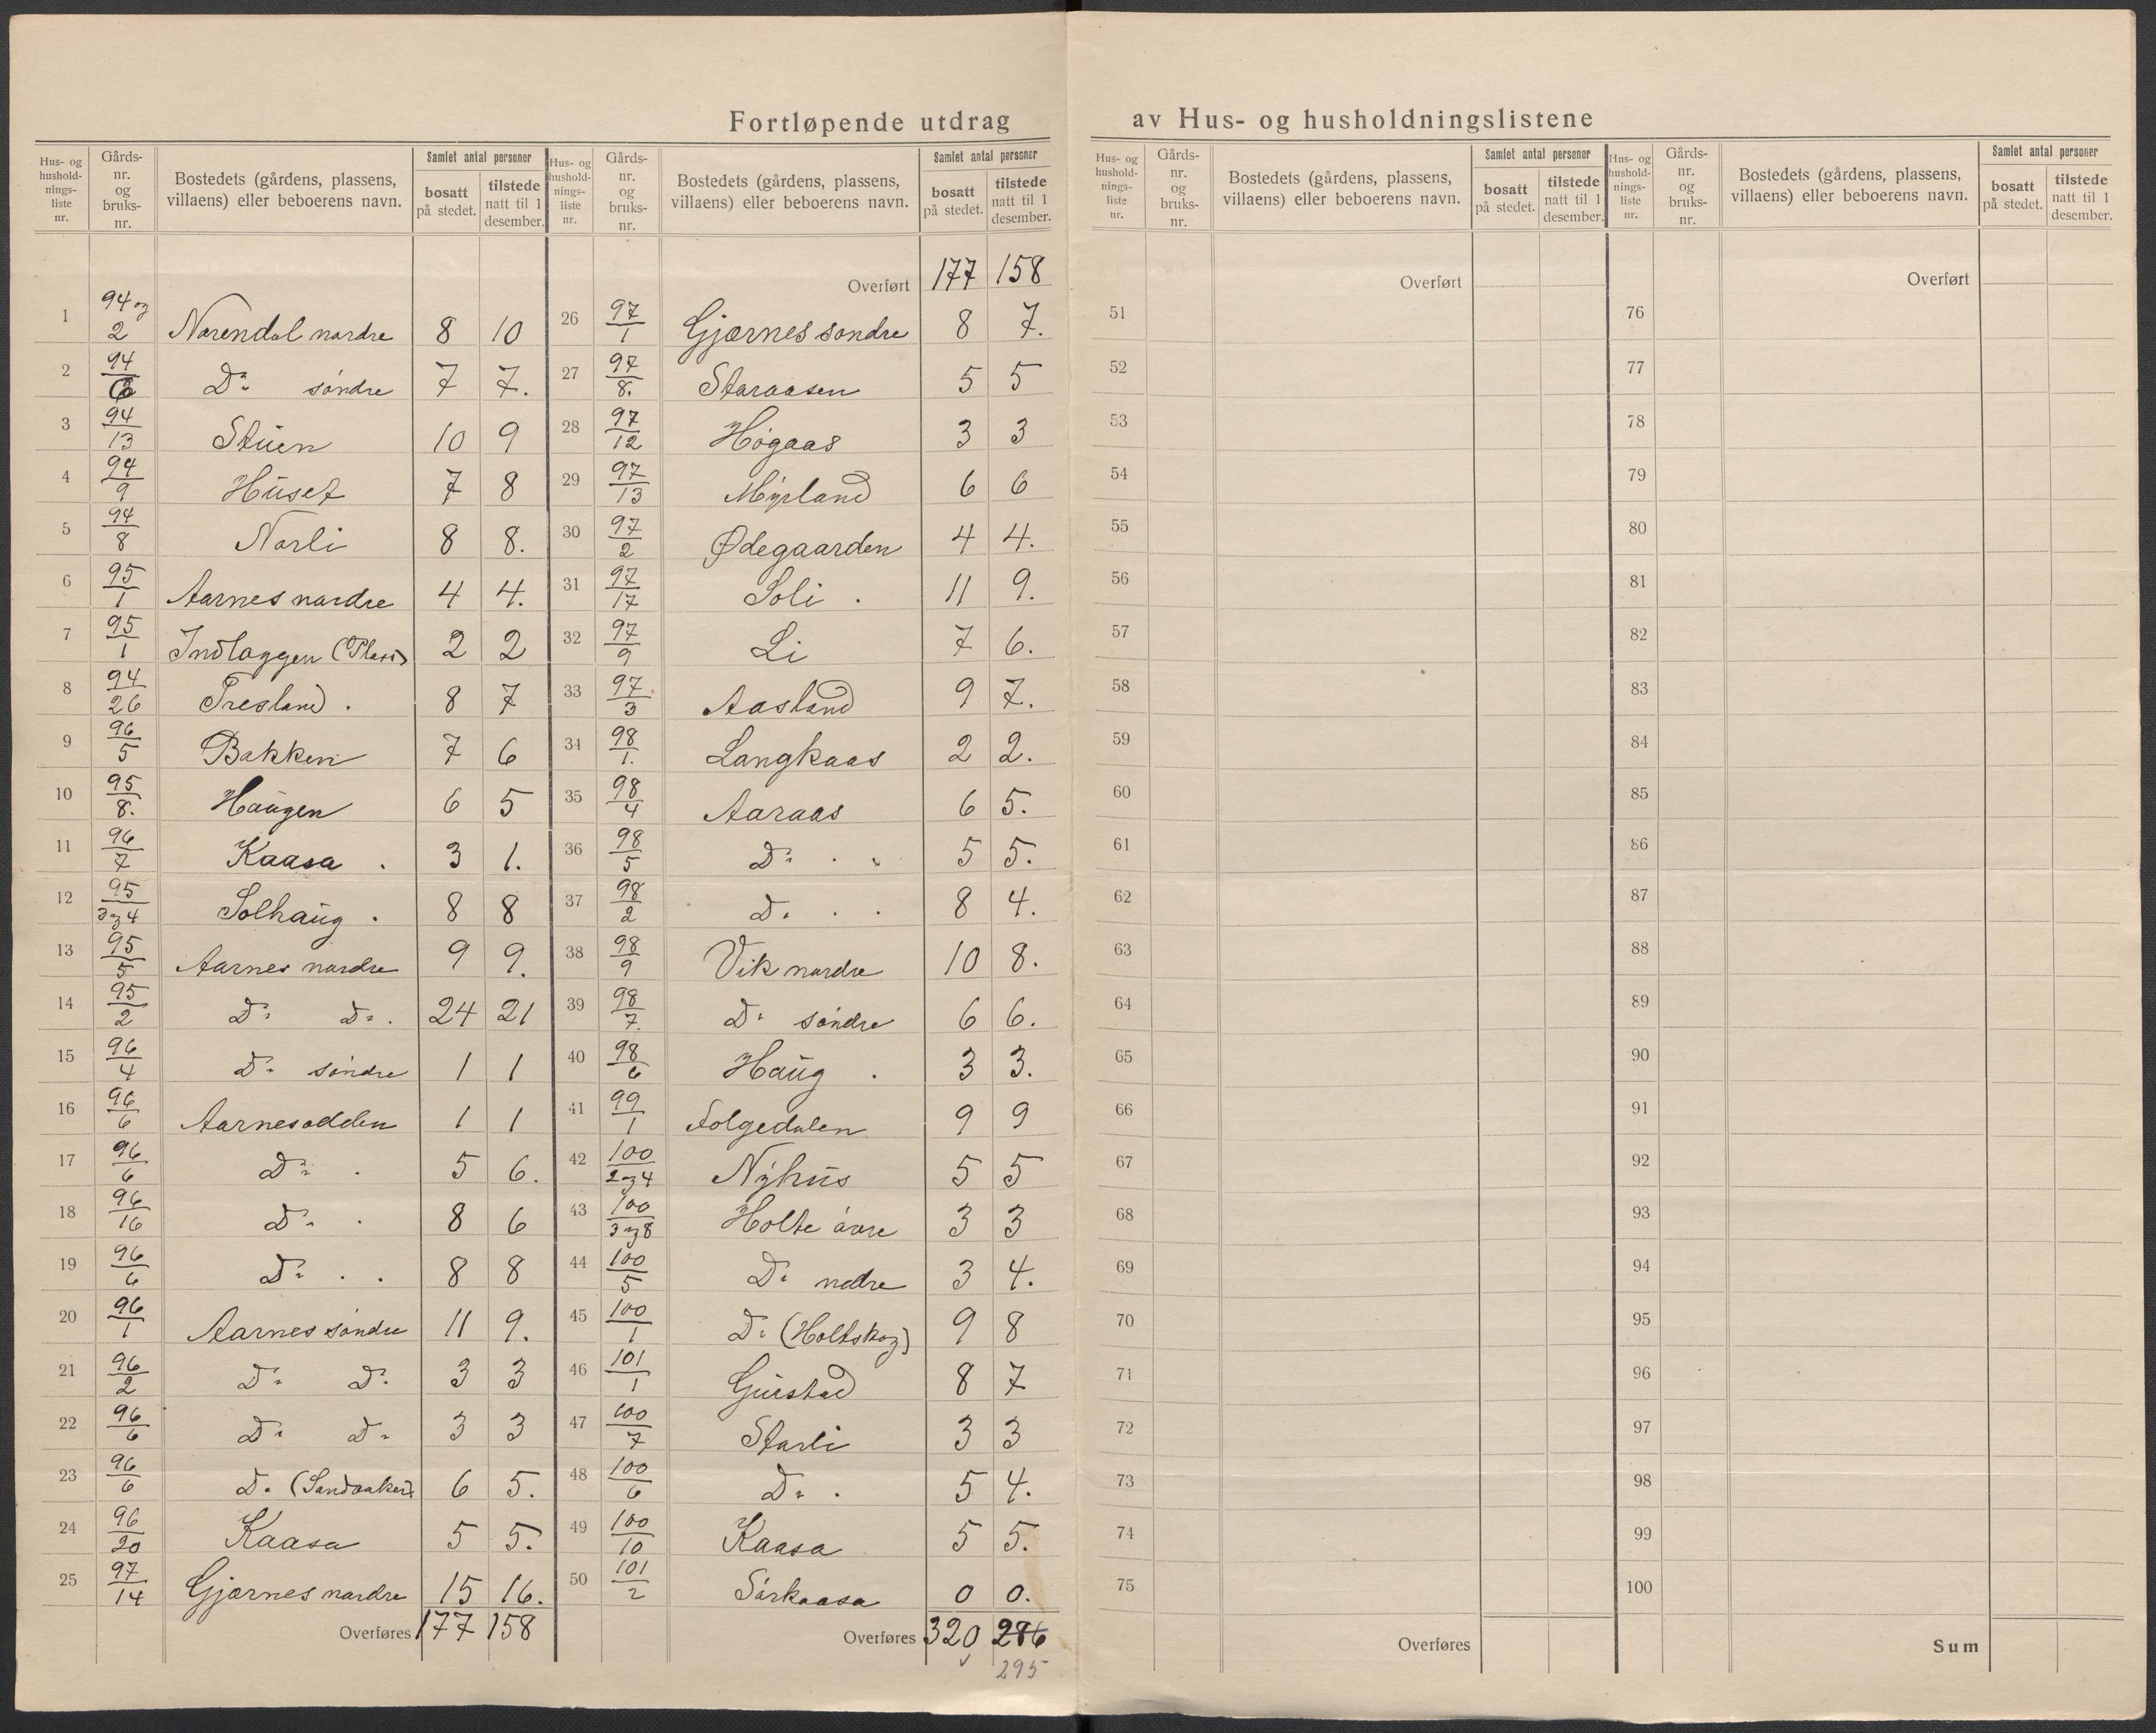 Fortløpende utdrag av Hus- og husholdningslistene
Hus- og husholdnings-liste nr. Gårds-nr. og bruks-nr. Bostedets (gårdens, plassens, villaens) eller beboerens navn. Samlet antal personer bosatt på stedet. tilstede natt til 1 desember.
1 94 og 2 Narendal nordre 8 10
2 94/6 Do søndre 7 7.
3 94/13 Stuen 10 9
4 94/9 Huset 7 8
5 94/8 Norli 8 8.
6 95/1 Aarnes nordre 4 4.
7 95/1 Indlaggen (Plass) 2 2
8 94/26 Tresland. 8 7
9 96/5 Bakken 7 6
10 95/8. Haugen 6 5
11 96/7 Kaasa. 3 1.
12 95/3 og 4 Solhaug. 8 8
13 95/5 Aarnes nordre 9 9.
14 95/2 Do Do. 24 21
15 96/4 Do søndre 1 1
16 96/6 Aarnesodden 1 1
17 96/6 Do. 5 6.
18 96/16 Do. 8 6
19 96/6 Do . . 8 8
20 96/1 Aarnes søndre 11 9.
21 96/2 Do Do 3 3
22 96/6 Do Do 3 3
23 96/6 Do (Sandaaker) 6 5.
24 96/20 Kaasa 5 5.
25 97/14 Gjærnes nordre 15 16.
Overføres 177 158
Hus- og husholdnings-liste nr. Gårds-nr. og bruks-nr. Bostedets (gårdens, plassens, villaens) eller beboerens navn. Samlet antal personer bosatt på stedet. tilstede natt til 1 desember.
Overført 177 158
26 97/1 Gjærnes søndre 8 7.
27 97/8. Staraasen 5 5
28 97/12 Høgaas 3 3
29 97/13 Myrland 6 6
30 97/2 Ødegaarden 4 4.
31 97/17 Soli. 11 9.
32 97/9 Li 7 6.
33 97/3 Aasland 9 7.
34 98/1. Langkaas 2 2.
35 98/4 Aaraas 6 5.
36 98/5 Do . . 5 5.
37 98/2 Do . . 8 4.
38 98/9 Vik nordre 10 8.
39 98/7. Do søndre 6 6.
40 98/6 Haug. 3 3.
41 99/1 Folgedalen 9 9
42 100/2 og 4 Nyhus 5 5
43 100/3 og 8 Holte øvre 3 3
44 100/5 Do nedre 3 4.
45 100/1 Do (Holtskog) 9 8
46 101/1 Gurstad 8 7
47 100/7 Starli 3 3
48 100/6 Do. 5 4.
49 100/10 Kaasa 5 5.
50 101/2 Sørkaasa 0 0.
Overføres 320 286
295
Hus- og husholdnings-liste nr. Gårds-nr. og bruks-nr. Bostedets (gårdens, plassens, villaens) eller beboerens navn. Samlet antal personer bosatt på stedet. tilstede natt til 1 desember.
Overført
51
52
53
54
55
56
57
58
59
60
61
62
63
64
65
66
67
68
69
70
71
72
73
74
75
Overføres
Hus- og husholdnings-liste nr. Gårds-nr. og bruks-nr. Bostedets (gårdens, plassens, villaens) eller beboerens navn. Samlet antal personer bosatt på stedet. tilstede natt til 1 desember.
Overført
76
77
78
79
80
81
82
83
84
85
86
87
88
89
90
91
92
93
94
95
96
97
98
99
100
Sum